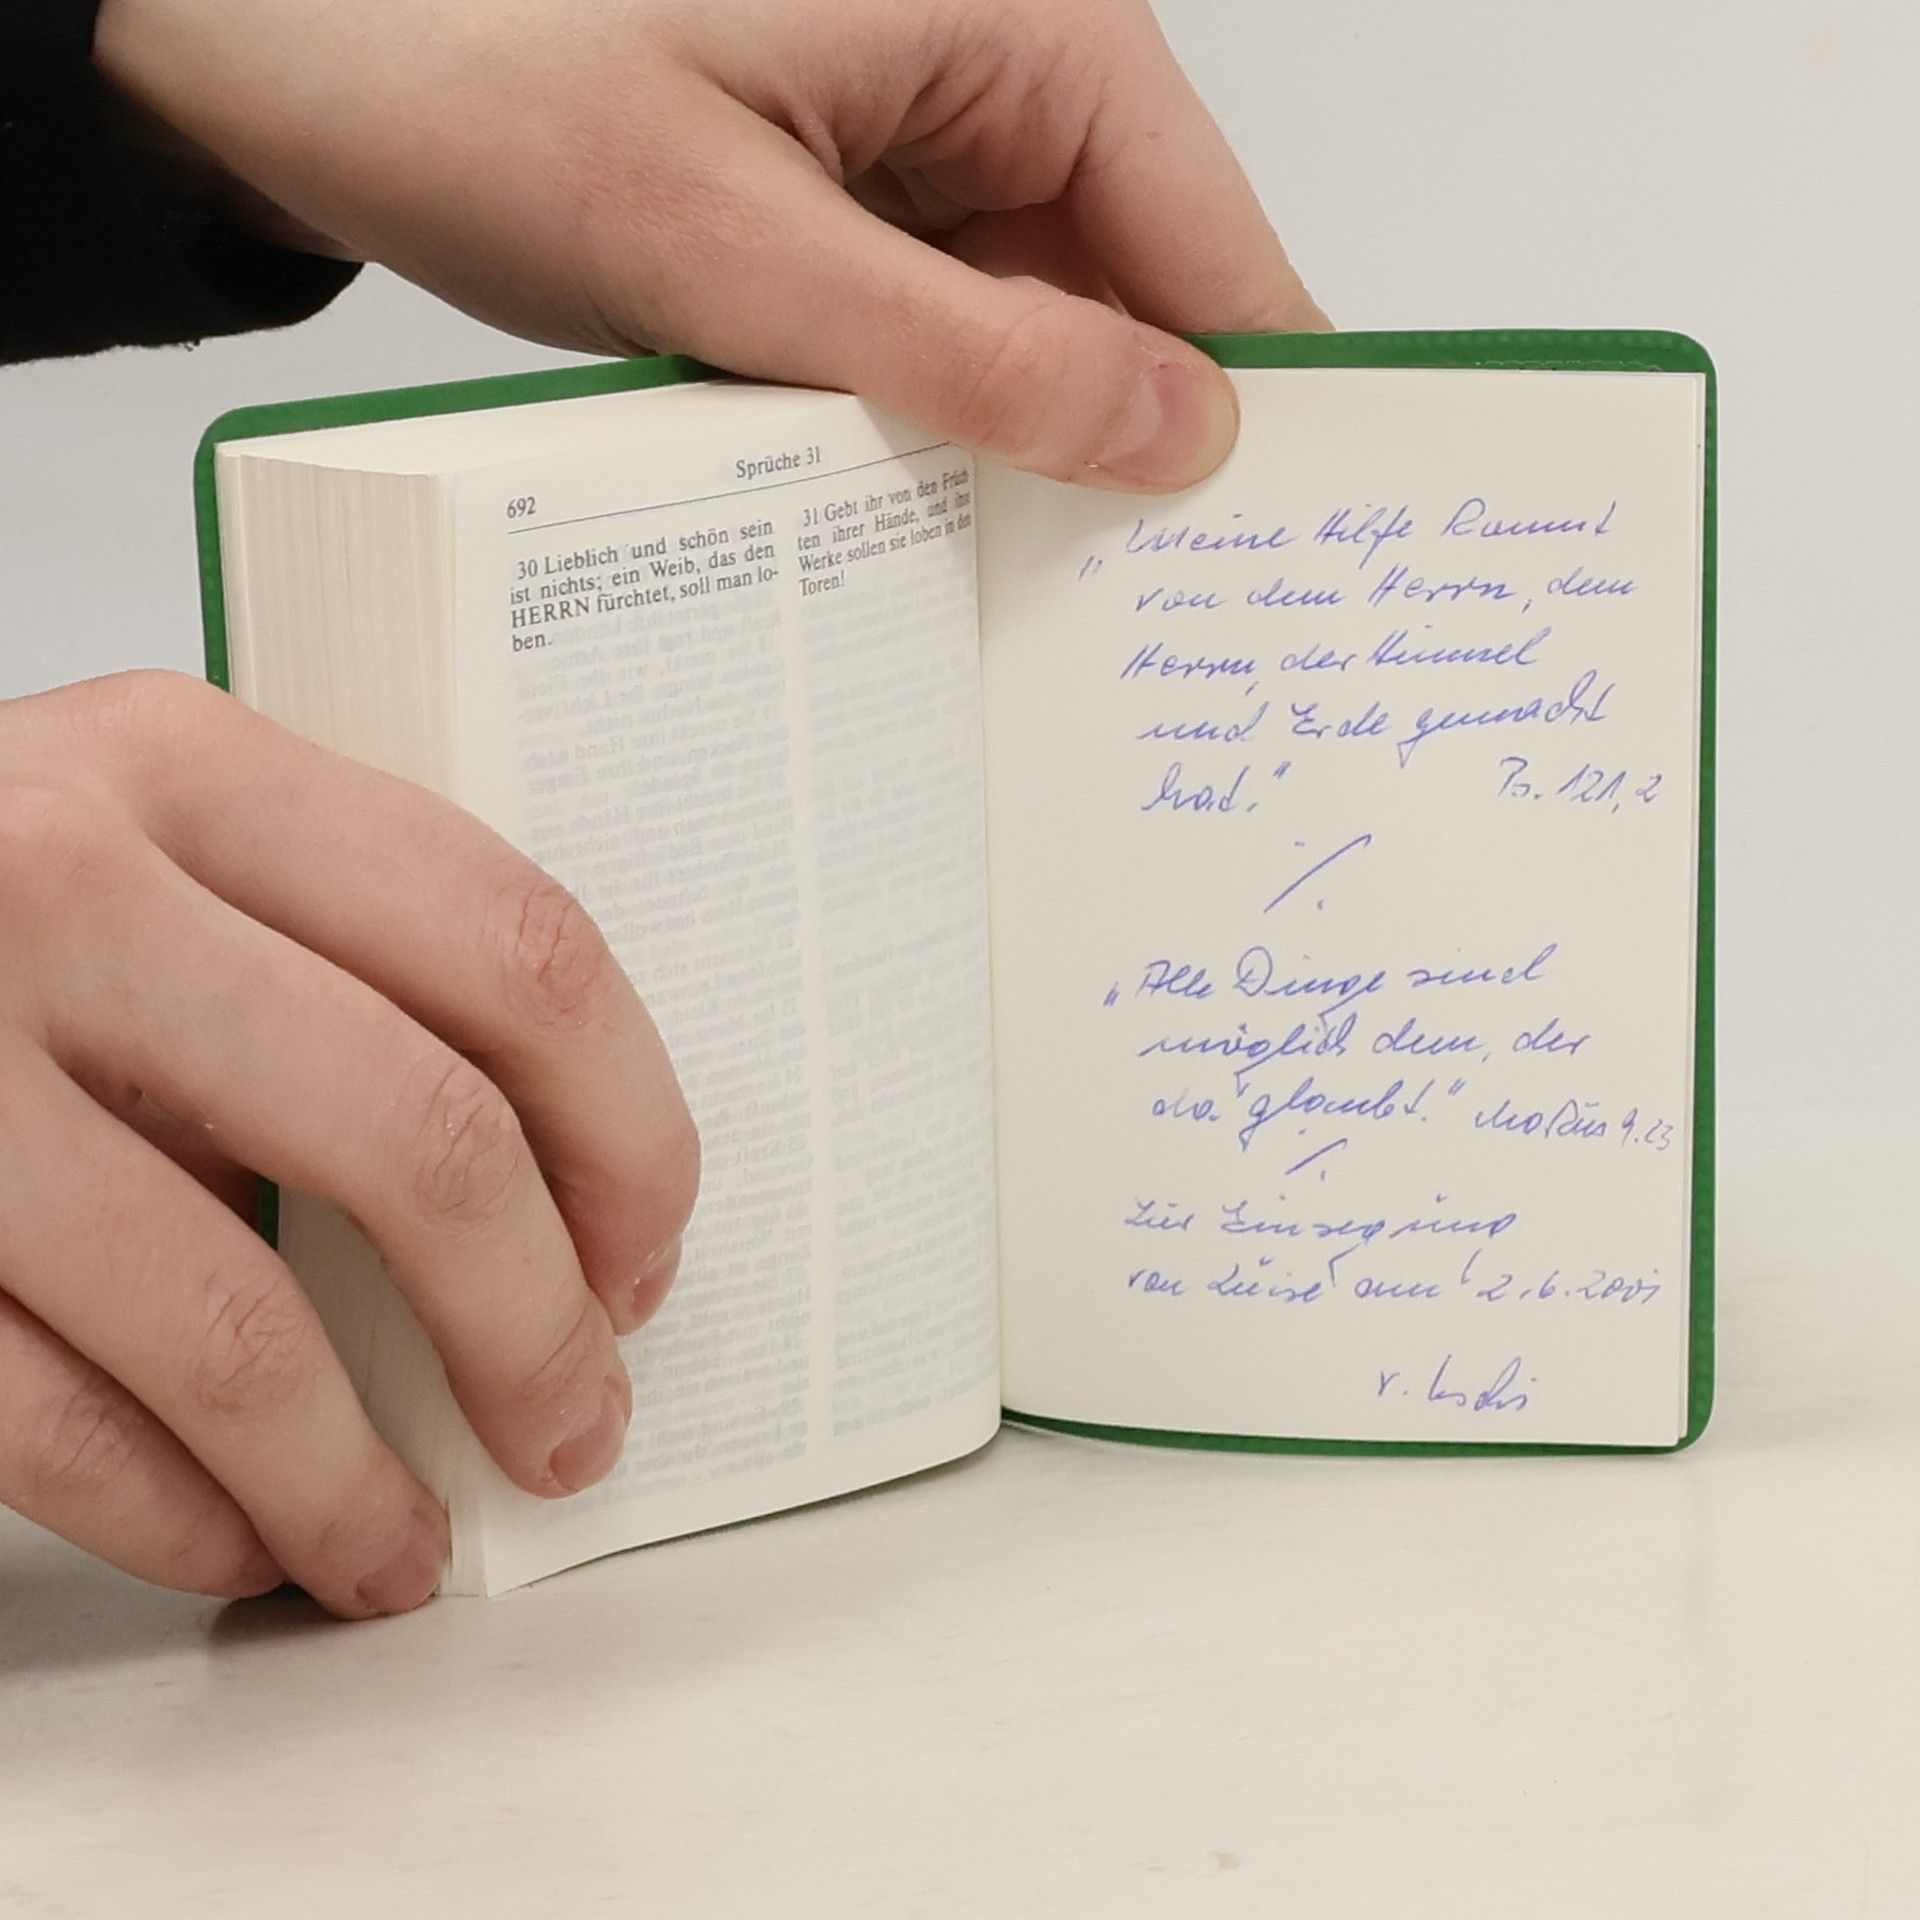 692
Sprüche 31
30 Lieblich und schön sein
ist nichts; ein Weib, das den
HERRN fürchtet, soll man lo-
ben.
31 Gebt ihr von den Früch-
ten ihrer Hände, und ihre
Werke sollen sie loben in den
Toren!
„Meine Hilfe kommt
von dem Herrn, dem
Herrn, der Himmel
und Erde gemacht
hat."
Ps. 121,2
"Alle Dinge sind
möglich dem, der
da glaubt." Markus 9.23
Zur Einsegnung
von Luise am 2.6.2001
v.